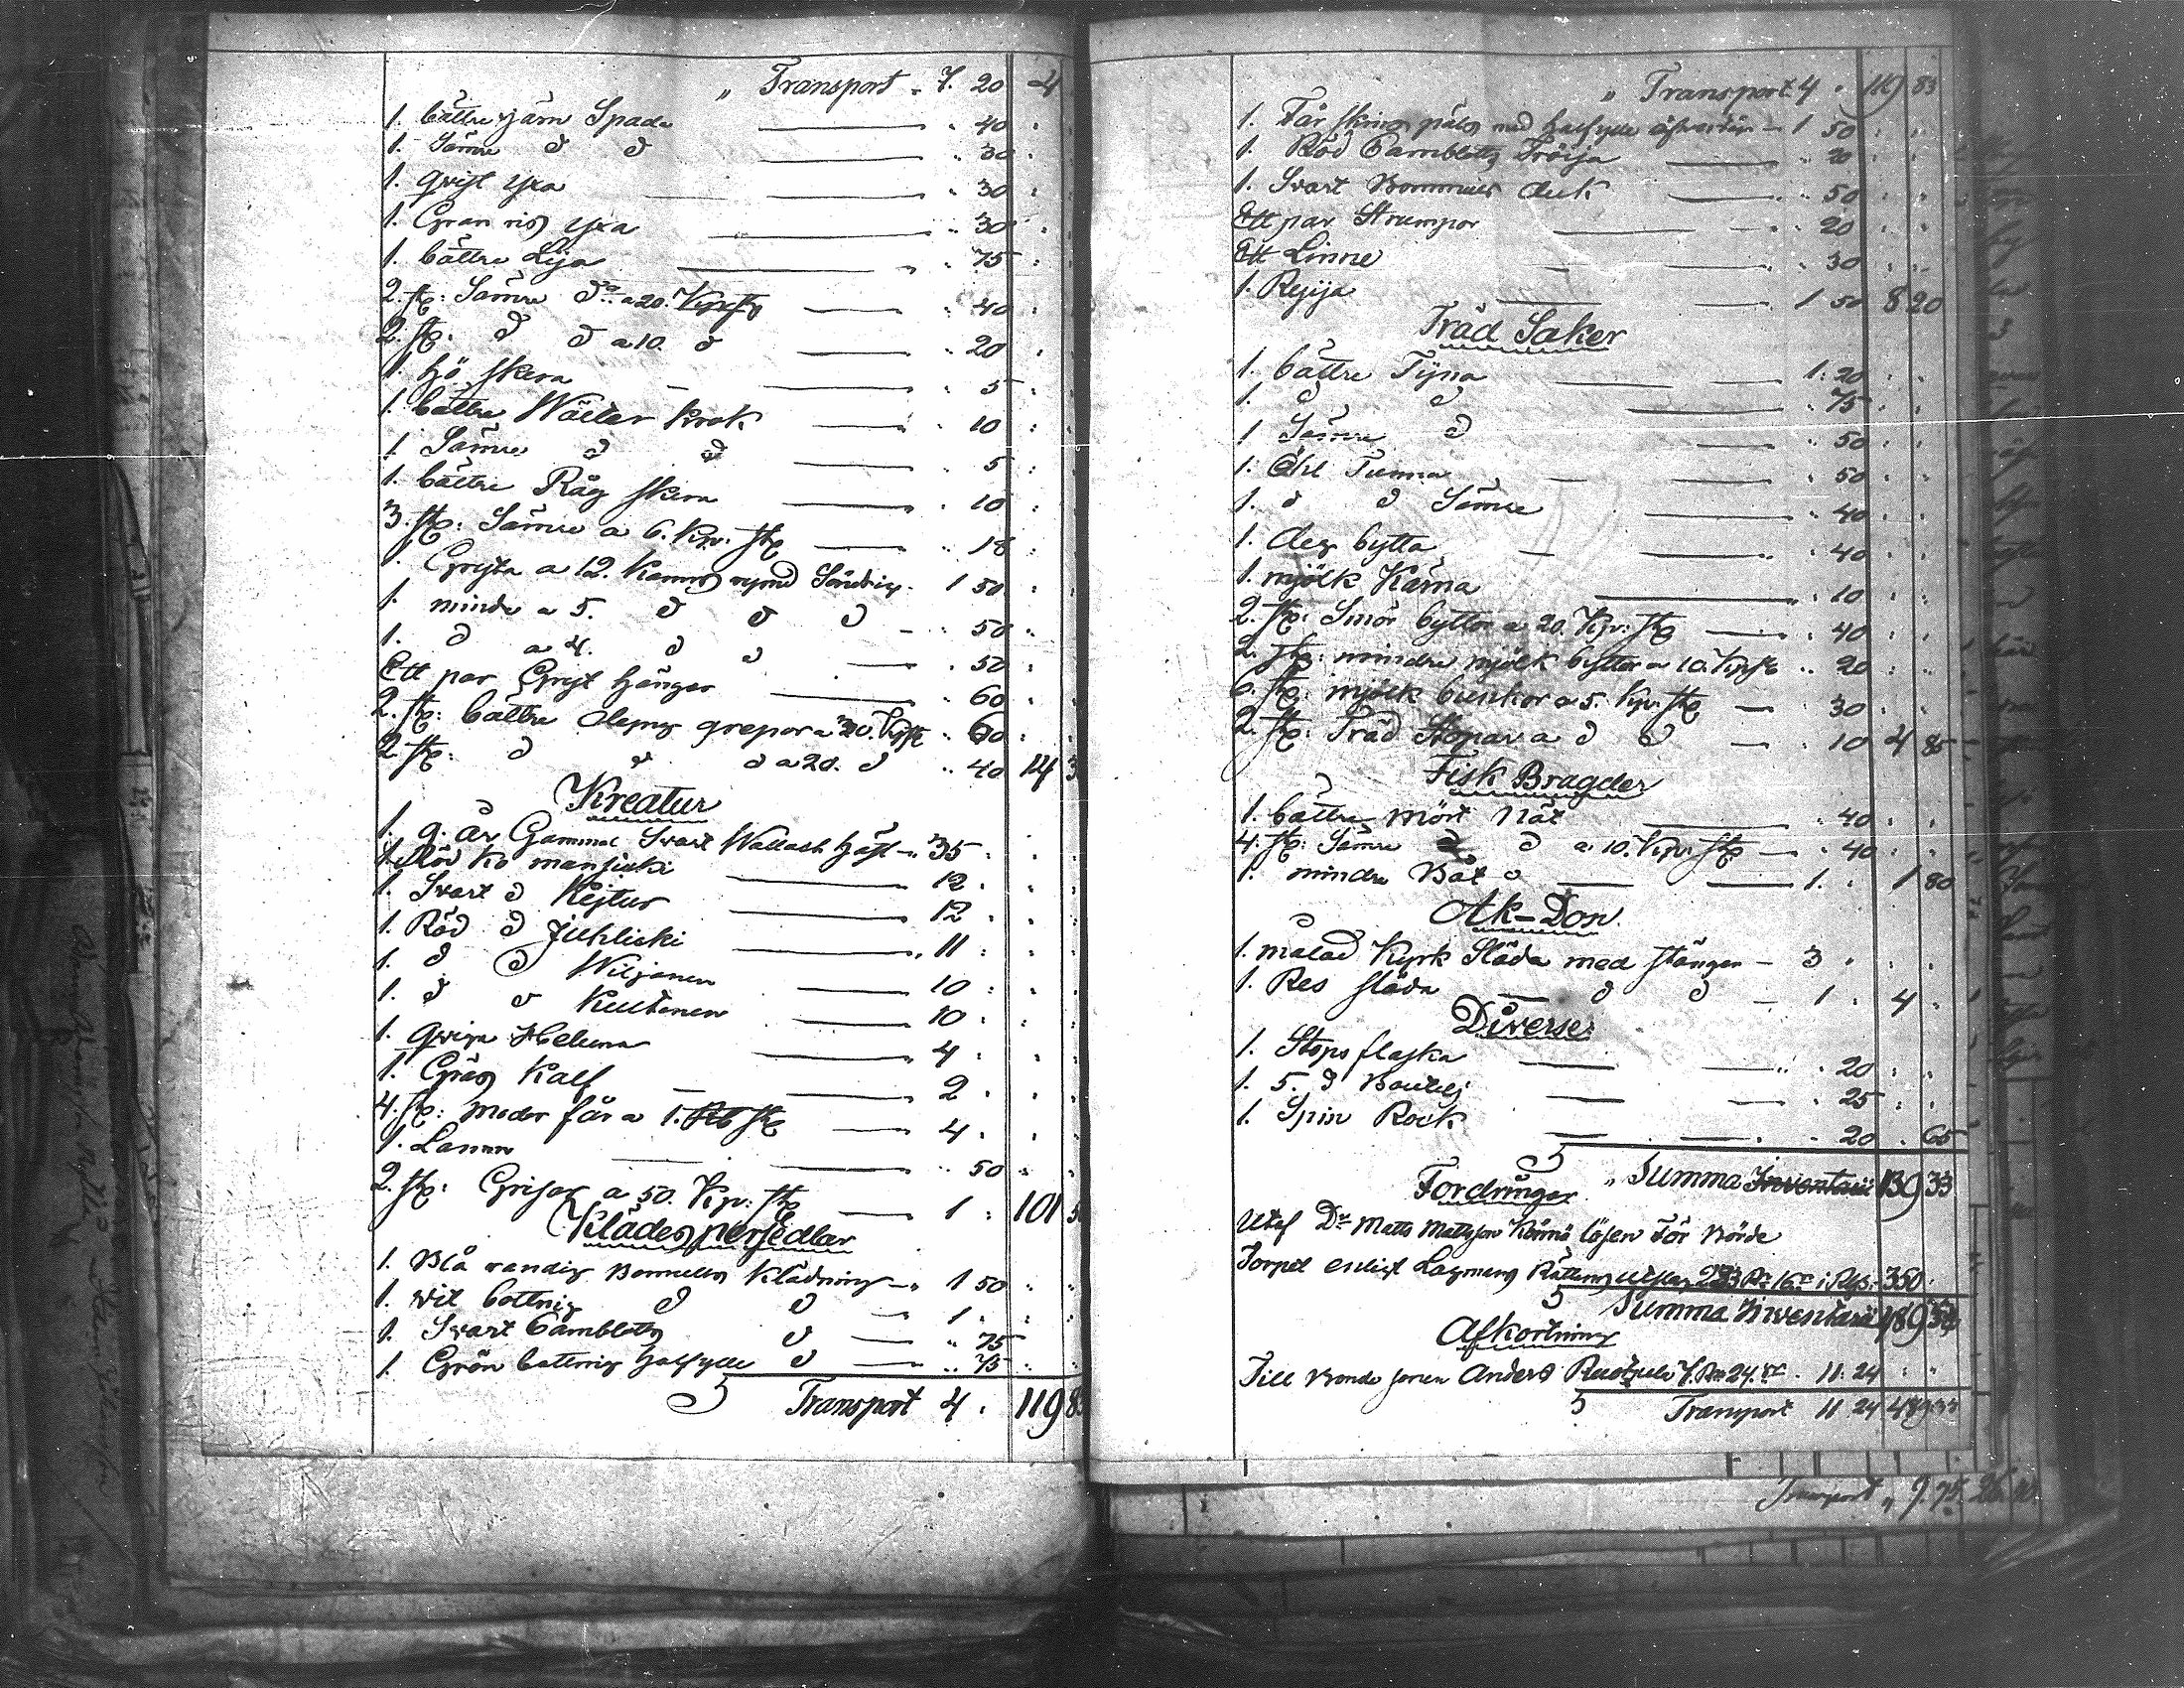 " Transport . 7. 20 4
1. bättre järn Spade . 40
1. Sämre d d . 30
1. qvist yxa . 30
1. Gran ris yxa . 30
1. bättre Lija . 75
2. st: Sämre d:o a 20. Kp: st . 40
2. st: d d a 10. d . 20
1. hö skera . 5
1. bättre Wälter krok . 10
1 Sämre d d . 5
1. bättre Råg skera . 10
3. st: Sämre a 6. Kp: st . 18
1. Gryta a 12. Kanns rymd Söndrig . 1 50
1. mindre a 5. d d d . 50
1. d a 4. d d . 50
Ett par Gryt hänger . 60
2. st: bättre dyng grepor a 30. Kp st . 60
2. st: d d d a 20. d . 40 14 3
Kreatur
1. 9. år Gammal Svart Wallach häst . 35
1. Röd ko mansicki 12
1. Svart d Kejtus 12
1. Röd d Juhlicki 11
1. d d Wiljanen 10
1. d d Kultanen 10
1. qviga Heluna 4
1. Gräs Kalf 2
4. st: moder får a 1. Rb st 4
1. Lamm . 50
2. st: Grisar a 50. Kp: st 1 101 5
Klädes persedlar
1. Blå randig Bomulls Klädning 1 50
1. vit bottnig d d 1
1. Svart Camblotts d . 75
1. Grön bottnig halfylle d . 75
Transport 4 . 119 8
" Transport 4 . 119 83
1. Får skins päls med halfylle 1 50
1. Röd Camblotts Tröija . 20
1. Svart Bommuls duk . 50
Ett par Strumpor . 20
Ett Linne . 30
1. Rejija 1 50 8 20
Träd Saker
1. bättre Tyna 1. 20
1. d d . 75
1 Sämre d . 50
1. Öhl Tunna . 50
1. d d Sämre . 40
1. deg bytta . 40
1. mjölk Kärna . 10
2. st: Smör byttor a 20. Kp: st . 40
2. st: mindre mjölk byttor a 10. Kp st . 20
6. st: mjölk bunkor a 5. Kp: st . 30
2. st: Träd Stopar a d d . 10 4 85
Fisk Bragder
1. bättre mört Nät . 40
4. st: Sämre d d a 10. Kp: st . 40
1. mindre Båt 1. . 1 80
Ak-Don
1. målad Kyrk Släda med stänger 3
1. Res släda d d 1 . 4
Diverse
1. Stops flaska . 20
1 5. d Boutelj . 25
1. Spin Rock . 20 . 65
" Summa Inventarii 139 33
Fordringar
Utaf Matts Mattsson lösen För Börde
Torpet enligt Lagmans Rättens utslag i 350
Summa Inventarii 489 33
Afkortning
Till Bonde sonen Anders 7. 24. . 11. 24
Transport 11 24 489 33
Transport " 9. 75